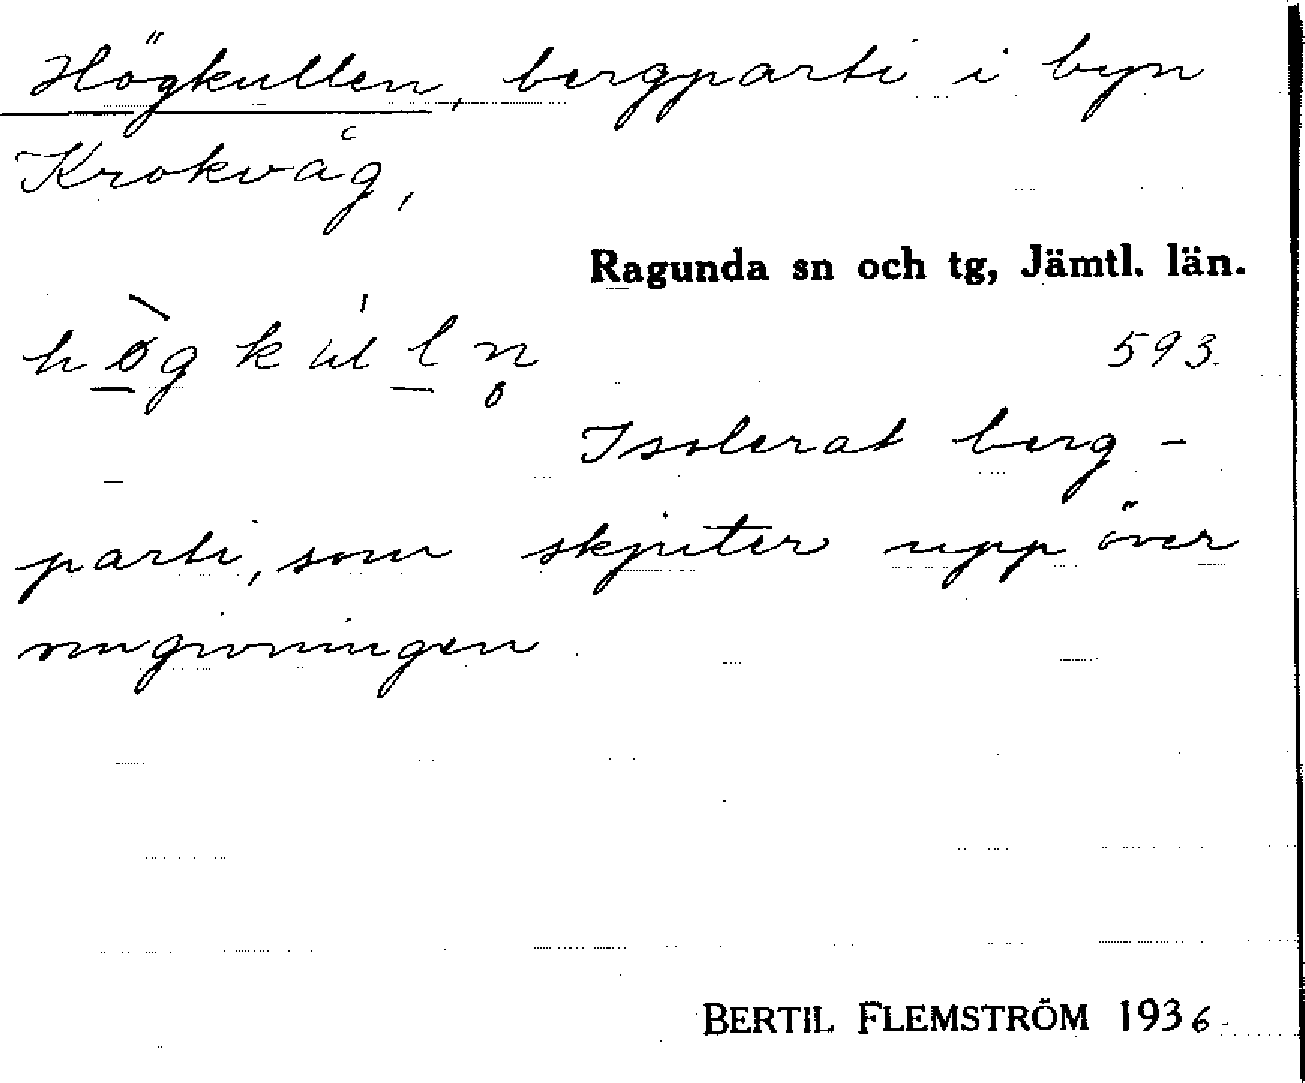 Högkullen, bergparti i byn
Krokvåg,
Ragunda sn och tg, Jämtl. län.
593.
Isolerat berg-
parti, som skjuter upp över
omgivningen
BERTIL FLEMSTRÖM 1936